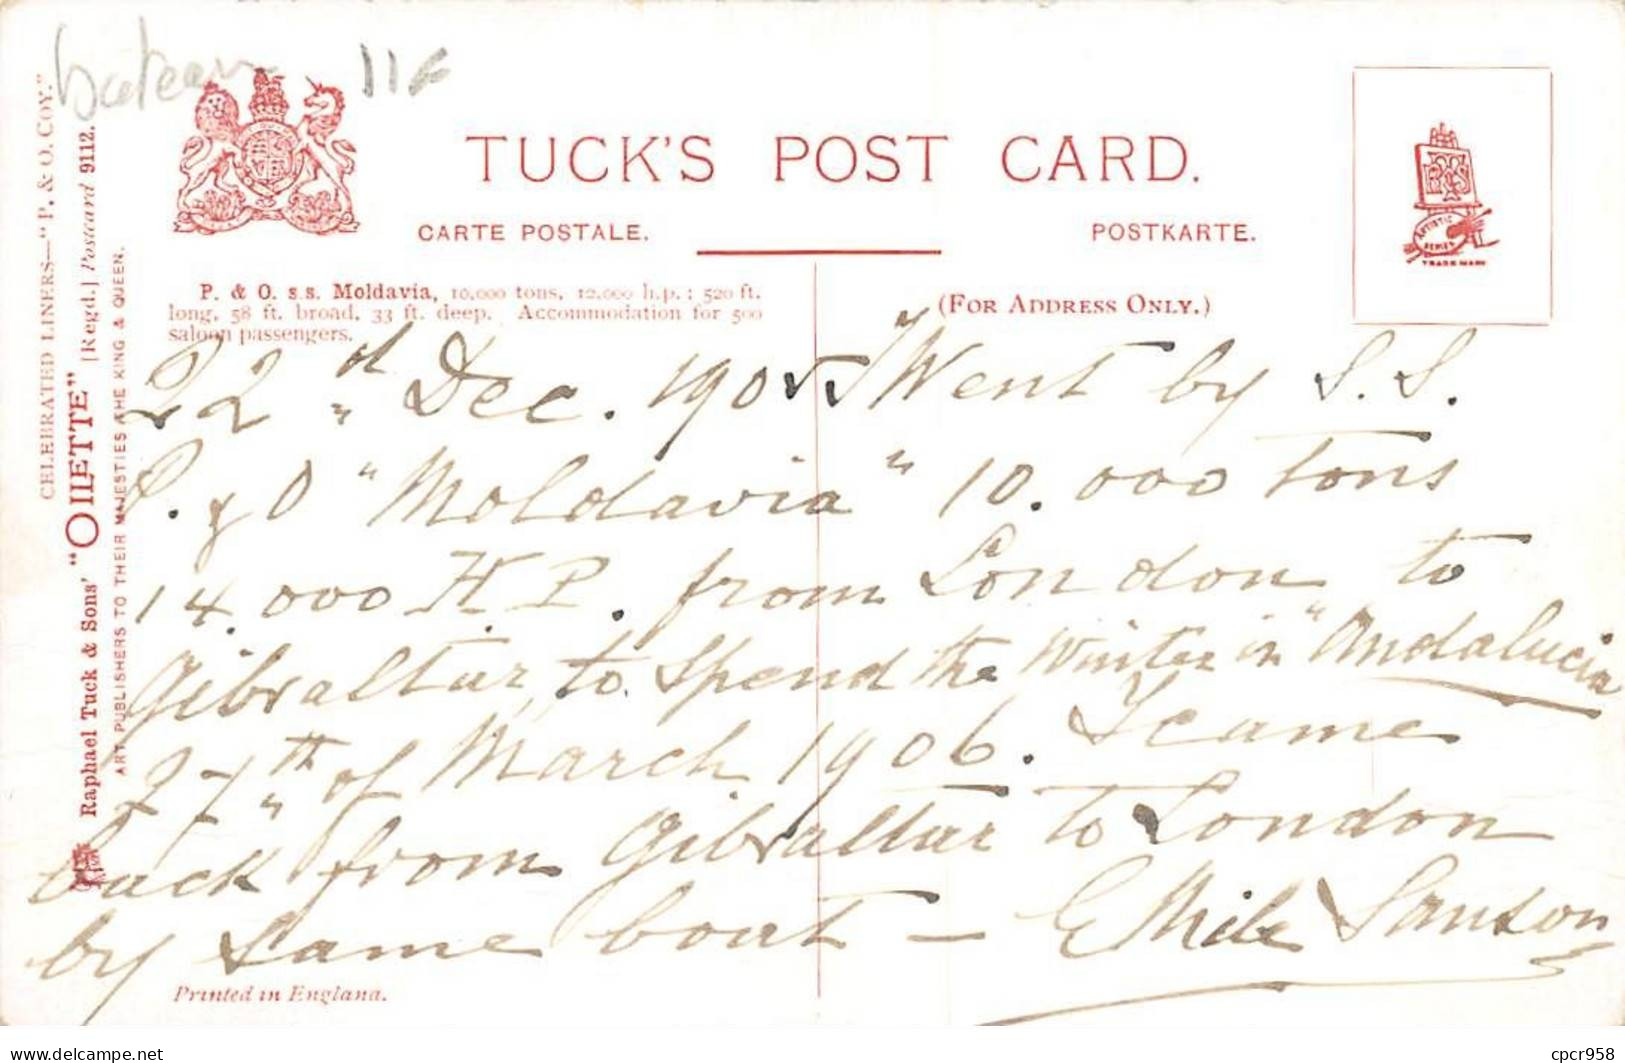 bateau 11€
TUCK'S POST CARD.
CARTE POSTALE. POSTKARTE.
ARTISTIC SERIES
TRADE MARK
CELEBRATED LINERS—"P. & O. COY."
Raphael Tuck & Sons' "OILETTE" [Regd.] Postcard 9112.
ART PUBLISHERS TO THEIR MAJESTIES THE KING & QUEEN.
P. & O. s.s. Moldavia, 10,000 tons, 12,000 h.p.; 520 ft.
long, 58 ft. broad, 33 ft. deep. Accommodation for 500
saloon passengers.
(FOR ADDRESS ONLY.)
22nd Dec. 1905 I Went by S.S.
P. & O "Moldavia" 10.000 tons
14.000 H.P. from London to
Gibraltar, to Spend the Winter in "Andalucia
27th of March 1906. I came
back from Gibraltar to London
by Same boat — Emile Sanson
Printed in England.
delcampe.net
cpcr958